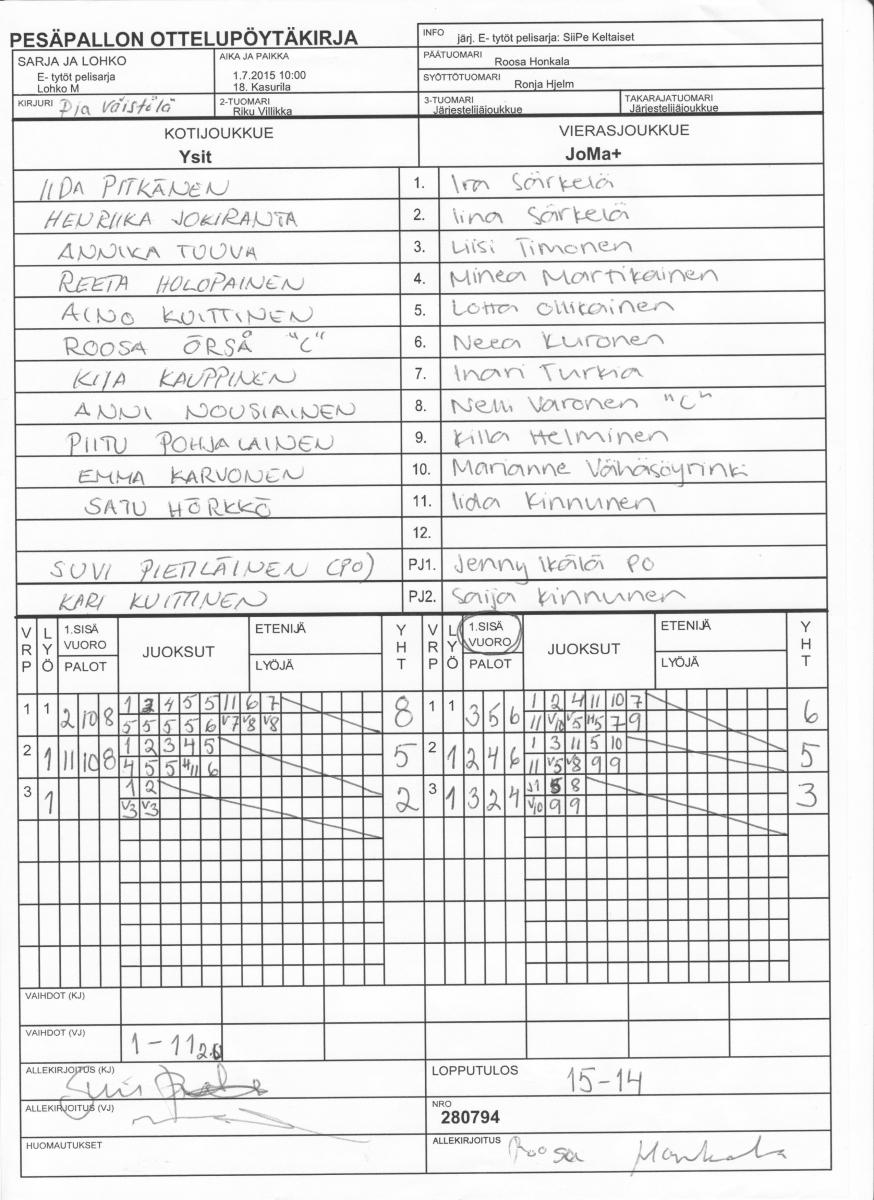 PESÄPALLON OTTELUPÖYTÄKIRJA
INFO järj. E- tytöt pelisarja: SiiPe Keltaiset
SARJA JA LOHKO
E- tytöt pelisarja
Lohko M
AIKA JA PAIKKA
1.7.2015 10:00
18. Kasurila
PÄÄTUOMARI Roosa Honkala
SYÖTTÖTUOMARI Ronja Hjelm
KIRJURI Pia Väistölä
2-TUOMARI
Riku Villikka
3-TUOMARI
Järjestelijäjoukkue
TAKARAJATUOMARI
Järjestelijäjoukkue
KOTIJOUKKUE VIERASJOUKKUE
Ysit JoMa+
IIDA PITKÄNEN 1. Ira Särkelä
HENRIIKA JOKIRANTA 2. Iina Särkelä
ANNIKA TUUVA 3. Liisi Timonen
REETA HOLOPAINEN 4. Minea Martikainen
AINO KUITTINEN 5. Lotta Ollikainen
ROOSA ÖRSÅ "C" 6. Neea Kuronen
KIIA KAUPPINEN 7. Inari Turkia
ANNI NOUSIAINEN 8. Nelli Varonen "C"
PIITU POHJALAINEN 9. Killa Helminen
EMMA KARVONEN 10. Marianne Vähäsöyrinki
SATU HÖRKKÖ 11. Iida Kinnunen
12.
SUVI PIETILÄINEN (PO) PJ1. Jenny Ikälä PO
KARI KUITTINEN PJ2. Saija Kinnunen
VRP LYÖ 1.SISÄ VUORO PALOT JUOKSUT ETENIJÄ LYÖJÄ YHT VRP LYÖ 1.SISÄ VUORO PALOT JUOKSUT ETENIJÄ LYÖJÄ YHT
1 1 2 10 8 1 2 4 5 5 11 6 7 8 1 1 3 5 6 1 2 4 11 10 7 6
5 5 5 5 6 V7 V8 V8 11 V10 V5 H5 7 9
2 1 11 10 8 1 2 3 4 5 5 2 1 2 4 6 1 3 11 5 10 5
4 5 5 H11 6 11 V5 V8 9 9
3 1 1 2 2 3 1 3 2 4 5 8 3
V3 V3 V10 9 9
VAIHDOT (KJ)
VAIHDOT (VJ) 1-11
ALLEKIRJOITUS (KJ)
LOPPUTULOS 15-14
ALLEKIRJOITUS (VJ)
NRO
280794
HUOMAUTUKSET
ALLEKIRJOITUS Roosa Honkala